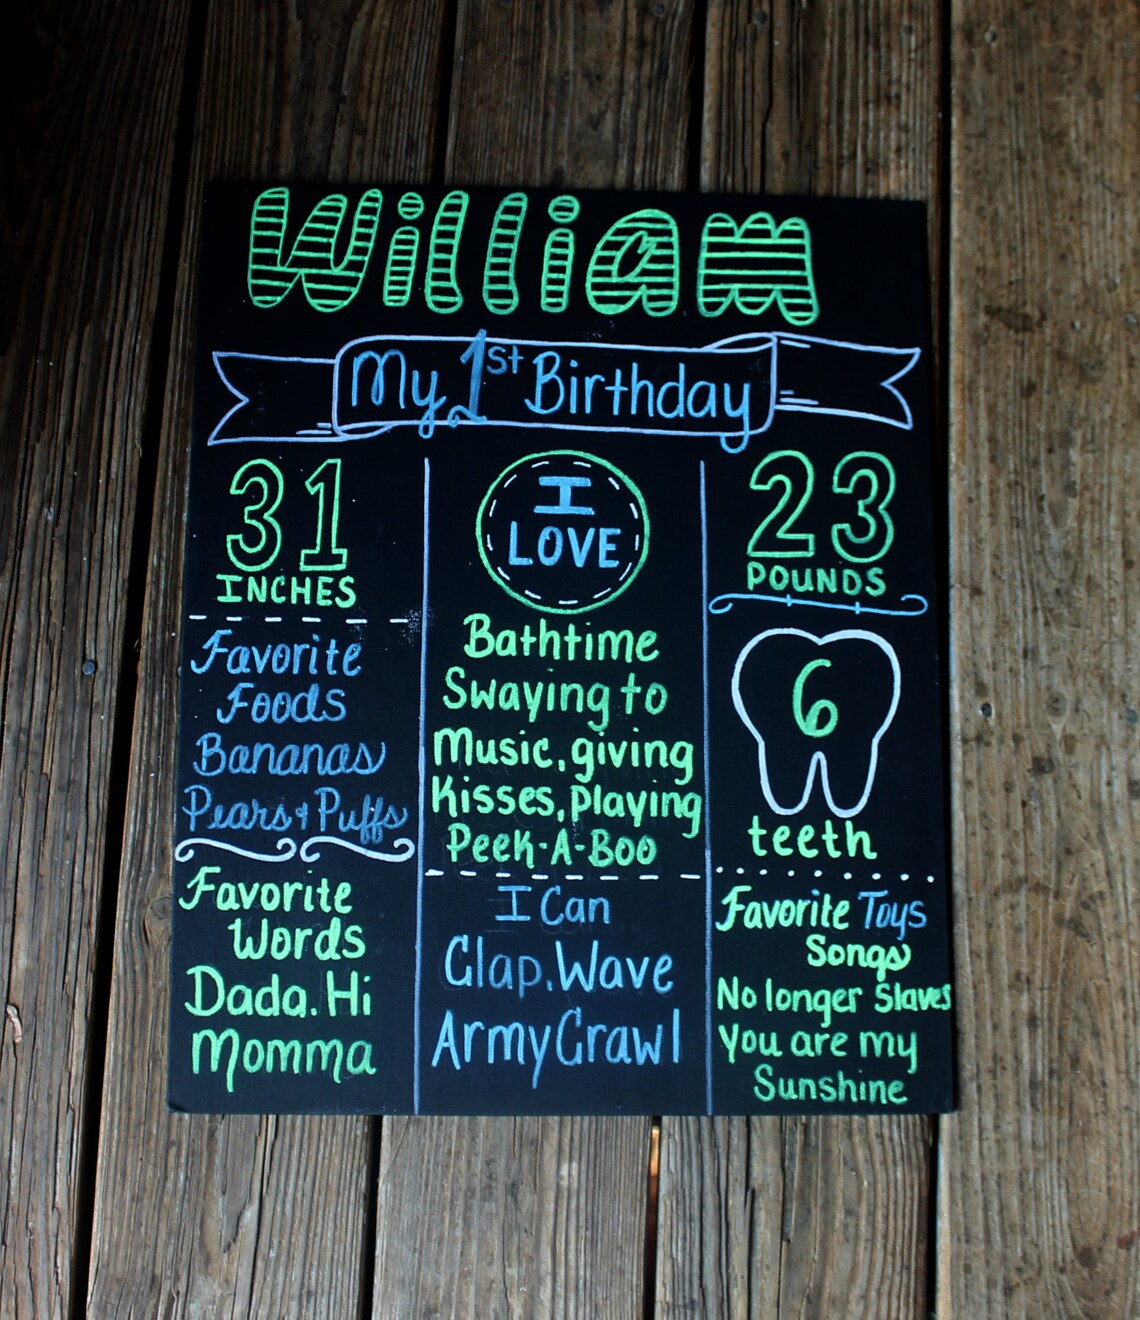 William
My 1st Birthday
31
INCHES
Favorite
Foods
Bananas
Pears & Puffs
Favorite
Words
Dada. Hi
Momma
I
LOVE
Bathtime
Swaying to
Music, giving
Kisses, Playing
Peek-A-Boo
I Can
Clap, Wave
Army Crawl
23
POUNDS
6
teeth
Favorite Toys
Songs
No longer Slaves
You are my
Sunshine